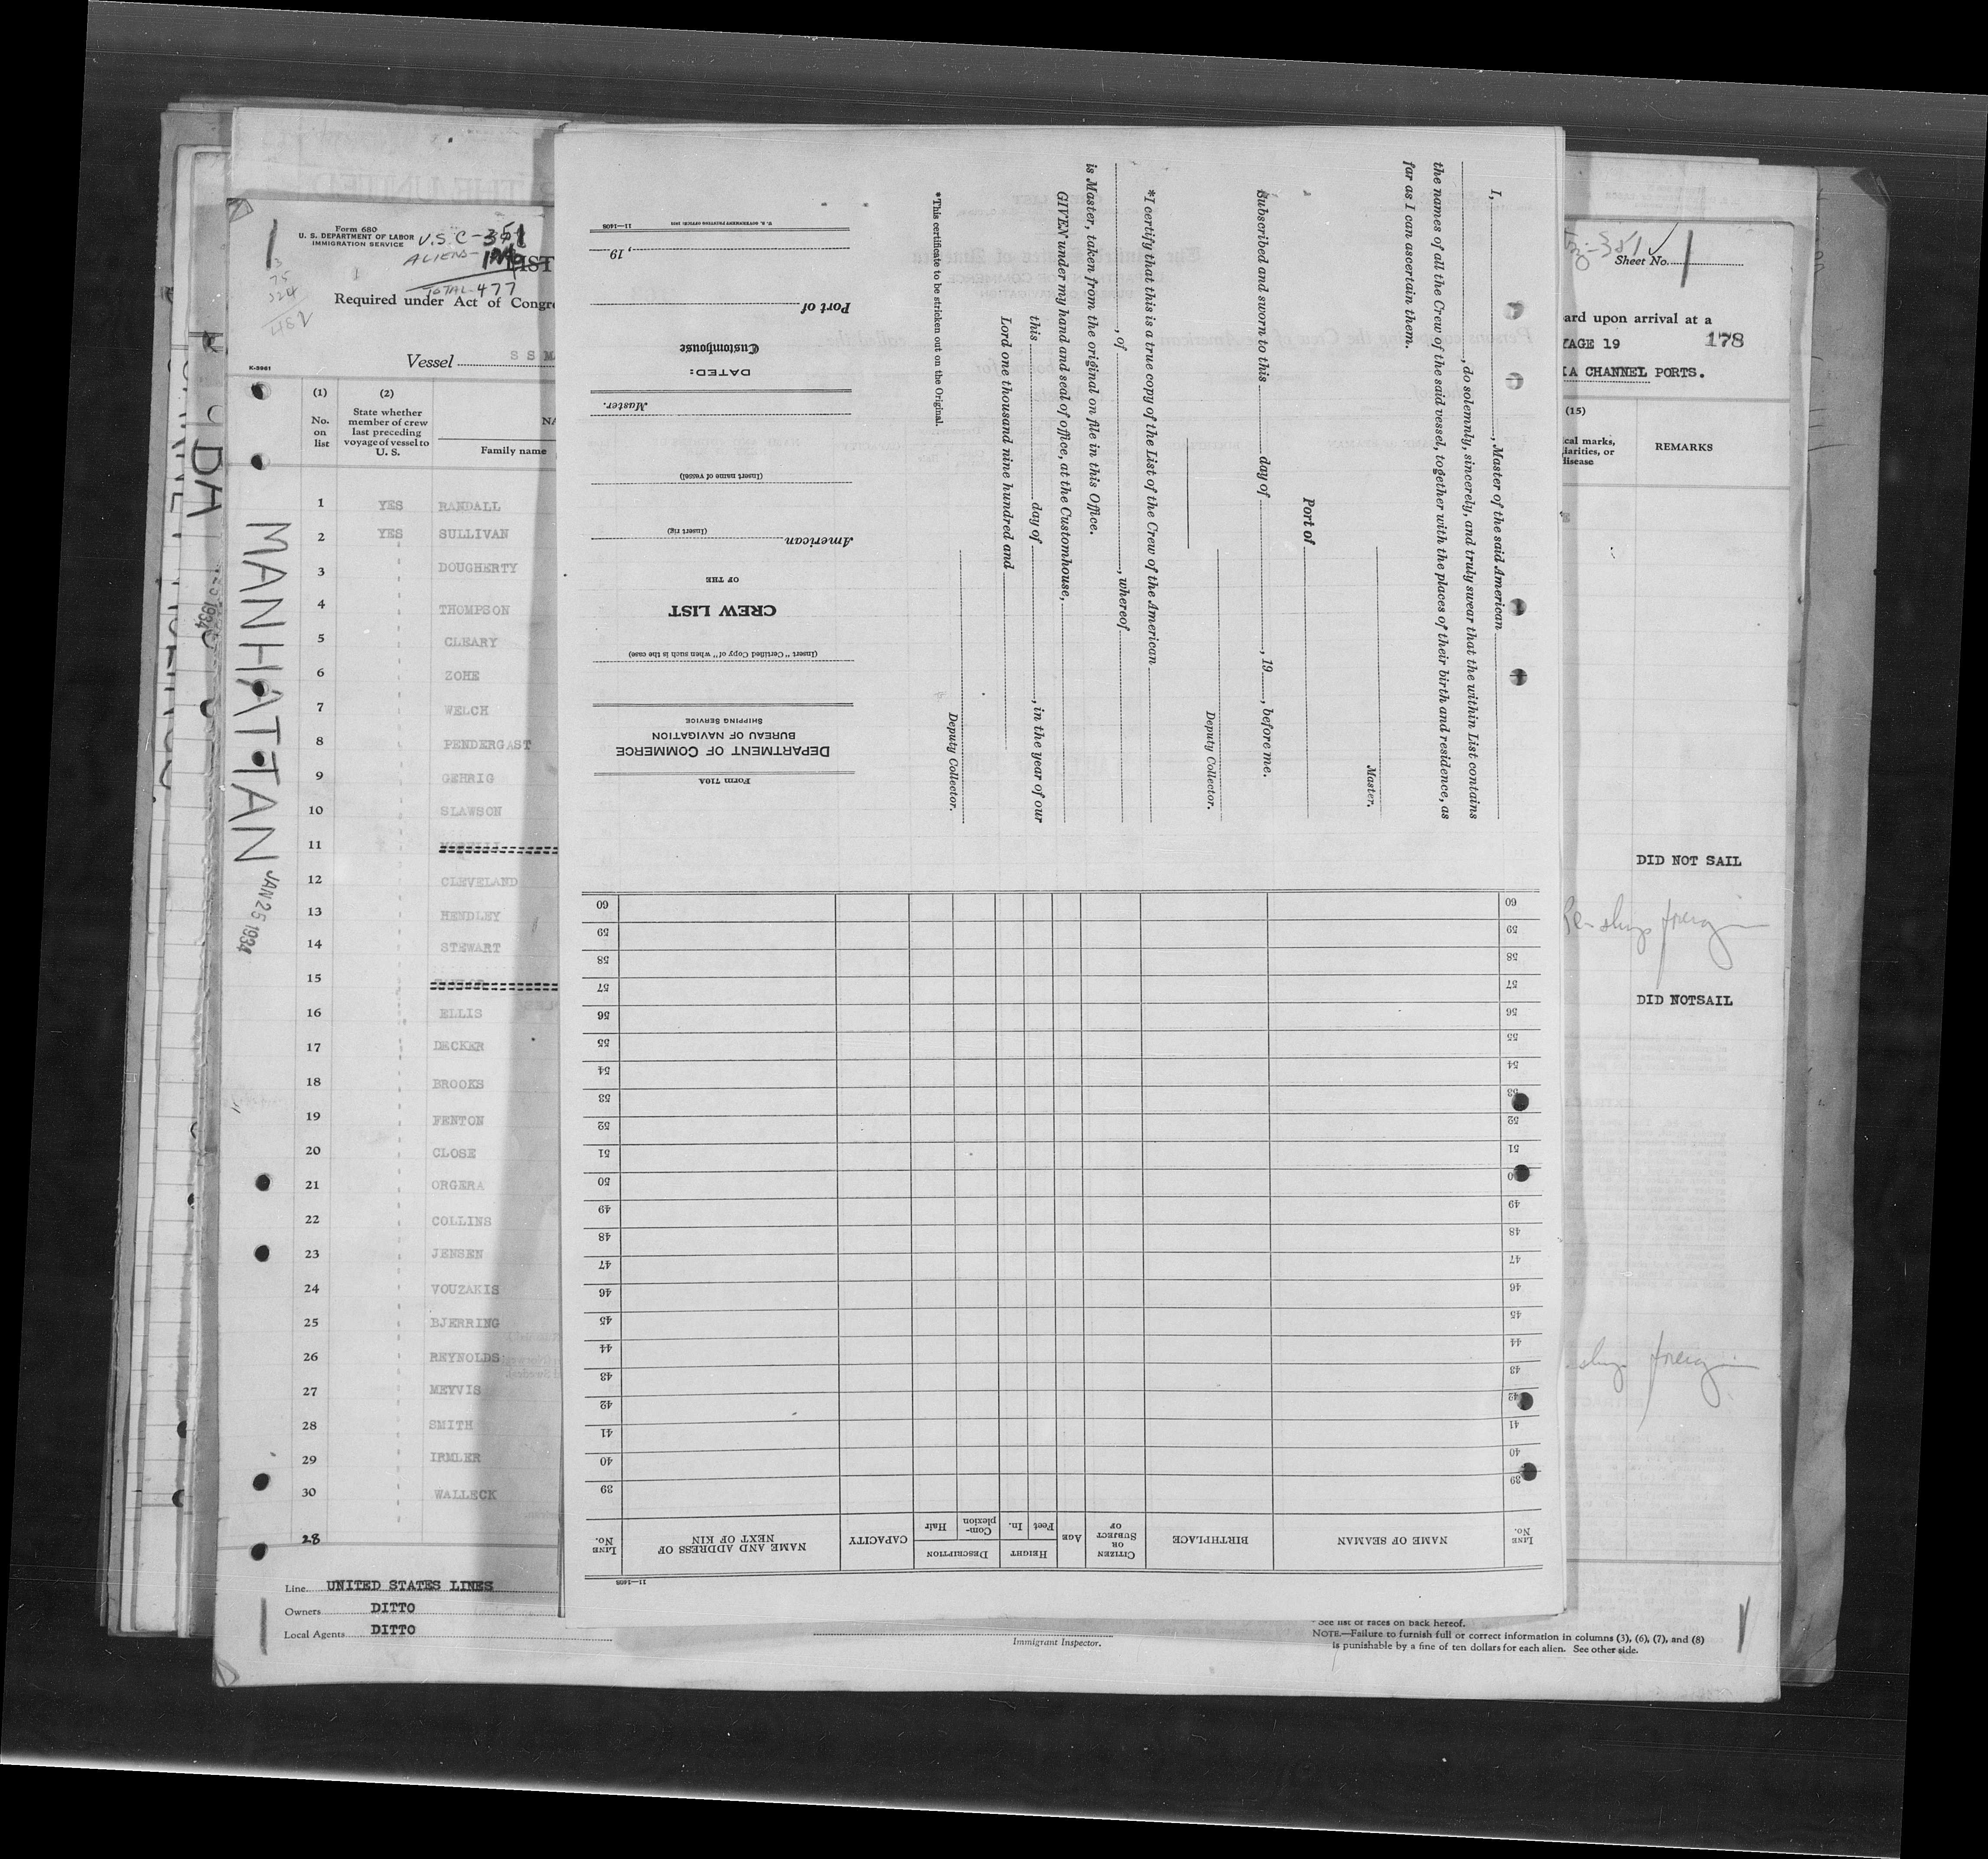 Form 680
U. S. DEPARTMENT OF LABOR
IMMIGRATION SERVICE
U.S.C-351
ALIENS-
TOTAL-477
LIST
Required under Act of Congre
Vessel S S M
K-5961
(1) (2)
No. on list
State whether member of crew last preceding voyage of vessel to U. S.
NA
Family name
1 YES RANDALL
2 YES SULLIVAN
3 " DOUGHERTY
4 " THOMPSON
5 " CLEARY
6 " ZOHE
7 " WELCH
8 " PENDERGAST
9 " GEHRIG
10 " SLAWSON
11
12 " CLEVELAND
13 " HENDLEY
14 " STEWART
15
16 " ELLIS
17 " DECKER
18 " BROOKS
19 " FENTON
20 " CLOSE
21 " ORGERA
22 " COLLINS
23 " JENSEN
24 " VOUZAKIS
25 " BJERRING
26 " REYNOLDS
27 " MEYVIS
28 " SMITH
29 " IRMLER
30 " WALLECK
28
Line UNITED STATES LINES
Owners DITTO
Local Agents DITTO
MANHATTAN JAN 25 1934
Immigrant Inspector.
Sheet No. 1
ard upon arrival at a
AGE 19 178
IA CHANNEL PORTS.
(15)
cal marks,
iarities, or
disease
REMARKS
DID NOT SAIL
DID NOTSAIL
* See list of races on back hereof.
NOTE.—Failure to furnish full or correct information in columns (3), (6), (7), and (8)
is punishable by a fine of ten dollars for each alien. See other side.
I, , Master of the said American
, do solemnly, sincerely, and truly swear that the within List contains
the names of all the Crew of the said vessel, together with the places of their birth and residence, as
far as I can ascertain them.
Master.
Port of
Subscribed and sworn to this day of , 19 , before me.
Deputy Collector.
*I certify that this is a true copy of the List of the Crew of the American
, of , whereof
is Master, taken from the original on file in this Office.
GIVEN under my hand and seal of office, at the Customhouse,
this day of , in the year of our
Lord one thousand nine hundred and
Deputy Collector.
*This certificate to be stricken out on the Original.
Form 710A
DEPARTMENT OF COMMERCE
BUREAU OF NAVIGATION
SHIPPING SERVICE
(Insert "Certified Copy of" when such is the case)
CREW LIST
OF THE
American
(Insert rig)
(Insert name of vessel)
Master.
DATED:
Customhouse
Port of
, 19
11—1408
U. S. GOVERNMENT PRINTING OFFICE
11—1408
LINE No.
NAME OF SEAMAN
BIRTHPLACE
CITIZEN OR SUBJECT OF
AGE
HEIGHT
Feet In.
DESCRIPTION
Complexion Hair
CAPACITY
NAME AND ADDRESS OF NEXT OF KIN
LINE No.
39 39
40 40
41 41
42 42
43 43
44 44
45 45
46 46
47 47
48 48
49 49
50 50
51 51
52 52
53 53
54 54
55 55
56 56
57 57
58 58
59 59
60 60